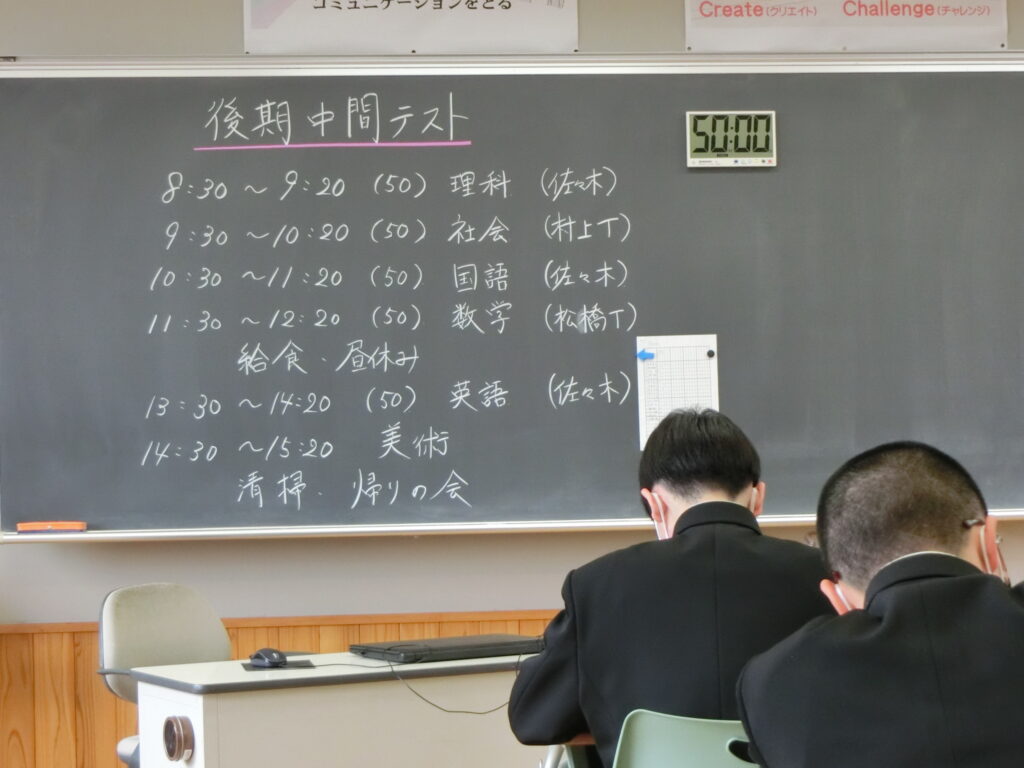 コミュニケーションをとる
Create(クリエイト) Challenge(チャレンジ)
後期中間テスト
50:00
8:30 ～ 9:20 (50) 理科 (佐々木)
9:30 ～10:20 (50) 社会 (村上T)
10:30 ～11:20 (50) 国語 (佐々木)
11:30 ～12:20 (50) 数学 (松橋T)
給食・昼休み
13:30 ～14:20 (50) 英語 (佐々木)
14:30 ～15:20 美術
清掃・帰りの会